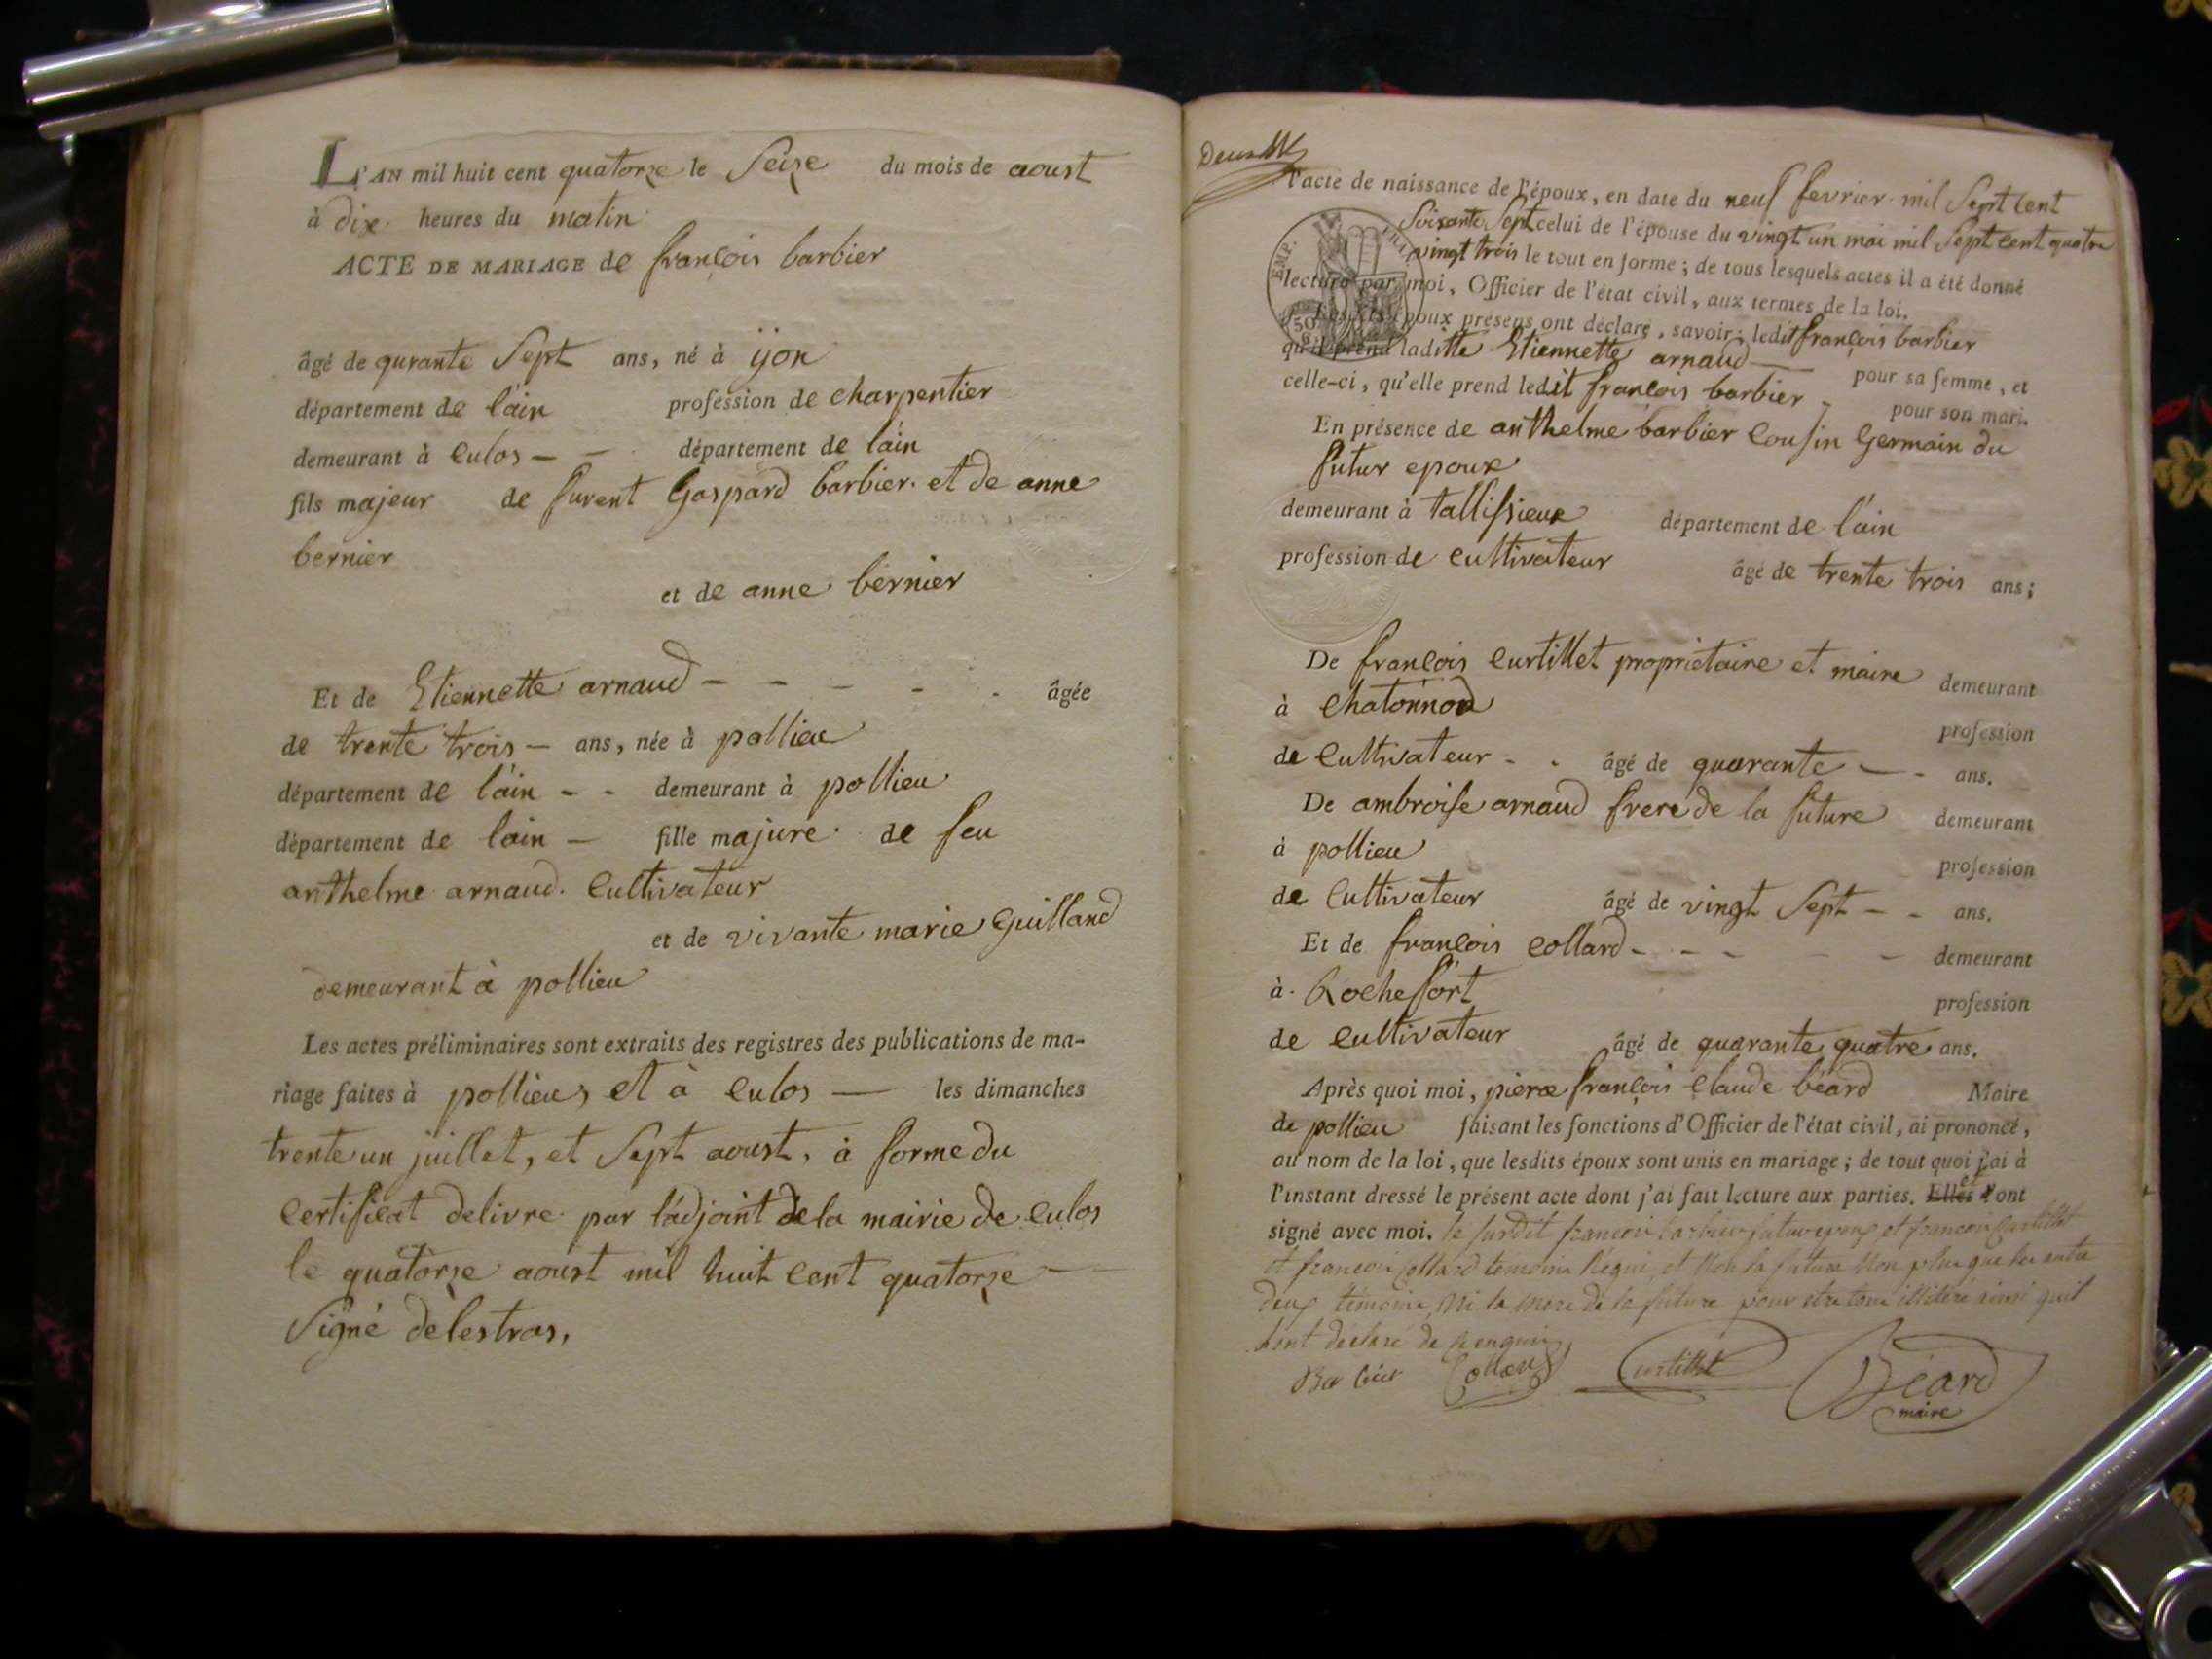 L'AN mil huit cent quatorze le Seize du mois de aoust
à dix heures du matin
ACTE DE MARIAGE de françois barbier
âgé de qurante Sept ans, né à ijon
département de l'ain profession de charpentier
demeurant à culos — — département de l'ain
fils majeur de furent Gaspard barbier. et de anne
bernier
et de anne bernier
Et de Etiennette arnaud — — — — - âgée
de trente trois — ans, née à pollieu
département de l'ain - - demeurant à pollieu
département de l'ain — fille majure de feu
anthelme arnaud. Cultivateur
et de vivante marie Guilland
demeurant à pollieu
Les actes préliminaires sont extraits des registres des publications de ma-
riage faites à pollieu, et à culos — les dimanches
trente un juillet, et Sept aoust, à forme du
Certificat delivre par l'adjoint de la mairie de culos
le quatorze aoust mil huit cent quatorze —
Signé delestras,
l'acte de naissance de l'époux, en date du neuf fevrier mil Sept cent
Soixante Sept celui de l'épouse du vingt un mai mil Sept cent quatre
vingt trois le tout en forme; de tous lesquels actes il a été donné
EMP. FRAN.
lecture par moi, Officier de l'état civil, aux termes de la loi.
époux présens ont déclaré, savoir: ledit françois barbier
50
qu'il prend laditte Etiennette arnaud — pour sa femme, et
celle-ci, qu'elle prend ledit françois barbier - pour son mari.
En présence de anthelme barbier Cousin Germain du
futur epoux
demeurant à tallissieux département de l'ain
profession de cultivateur âgé de trente trois ans;
De françois Curtillet propriétaire et maire demeurant
à Chatonnod
profession
de Cultivateur - - âgé de quarante — - ans.
De ambroise arnaud frere de la future demeurant
à pollieu
profession
de Cultivateur âgé de vingt Sept - - ans.
Et de françois Collard - - - - - demeurant
à Rochefort
profession
de Cultivateur âgé de quarante quatre ans.
Après quoi moi, pierre françois Claude béard Maire
de pollieu faisant les fonctions d'Officier de l'état civil, ai prononcé,
au nom de la loi, que lesdits époux sont unis en mariage; de tout quoi j'ai à
l'instant dressé le présent acte dont j'ai fait lecture aux parties. Elles et l'ont
signé avec moi. le surdit francois barbier futur epoux et francois Curtillet
et francois Collard temoins requi, et Non la future Non plus que les autre
deux témoins, Ni la mere de la future pour etre tous illiteré ainsi quil
lont déclaré de ce enquis
Barbier Collard Curtillet Béard
maire